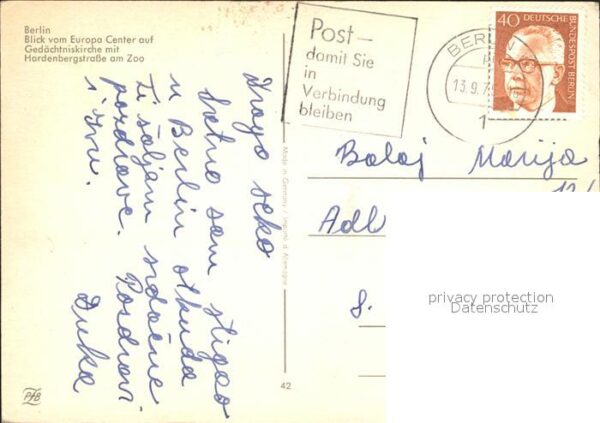 Berlin
Blick vom Europa Center auf
Gedächtniskirche mit
Hardenbergstraße am Zoo
Post—
damit Sie
in
Verbindung
bleiben
BERLIN
13.9.7
1
40 DEUTSCHE BUNDESPOST BERLIN
Drago seko
sretno sam stigao
u Berlin otkuda
Ti šaljem srdačne
pozdrave. Pozdravi
i Ivu.
Duka
Made in Germany / Imprimé d. Allemagne
Balaj Marija
Adl
8.
privacy protection
Datenschutz
PfB
42